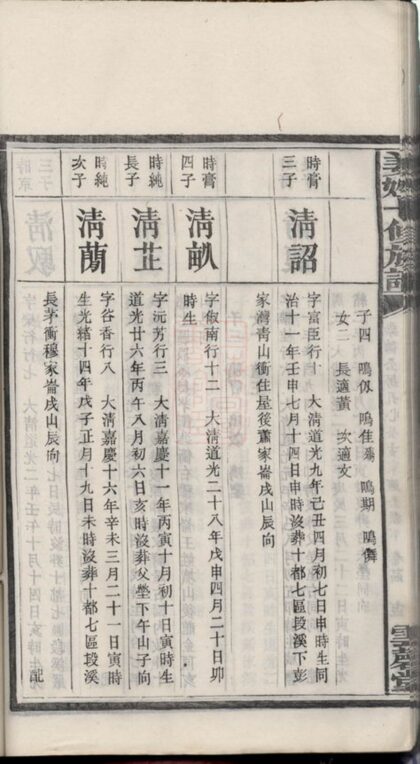 子四 鳴 鳴佳 鳴期 鳴儕
女二 長適黃 次適文
時膏三子
清詔
字富臣行十 大清道光九年己丑四月初七日申時生同
治十一年壬申七月十四日申時沒葬十都七區段溪下彭
家灣青山衝住屋後蕭家崙戌山辰向
時膏四子
清畝
字俶南行十二 大清道光二十八年戊申四月二十日卯
時生
時純長子
清芷
字沅芳行三 大清嘉慶十一年丙寅十月初十日寅時生
道光廿六年丙午八月初六日亥時沒葬父塋下午山子向
時純次子
清蘭
字谷香行八 大清嘉慶十六年辛未三月二十一日寅時
生光緒十四年戊子正月十九日未時沒葬十都七區段溪
長茅衝穆家崙戌山辰向 配